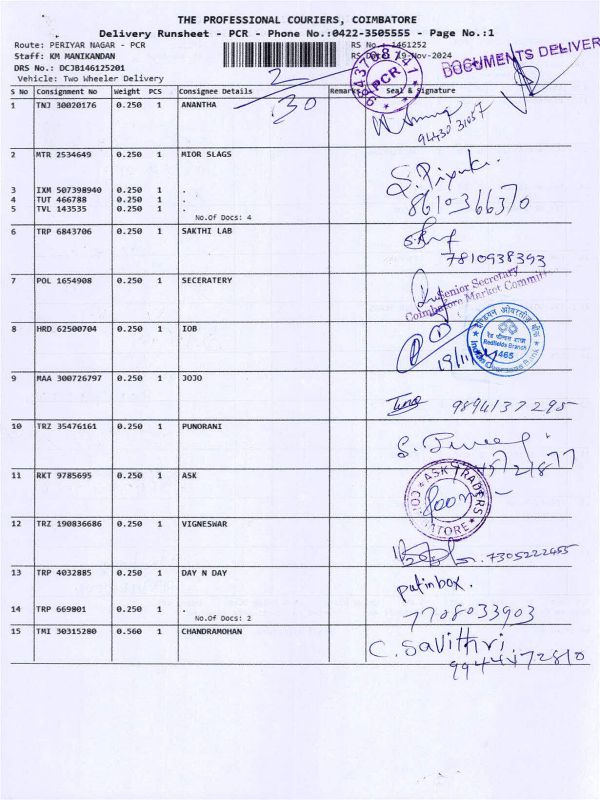 THE PROFESSIONAL COURIERS, COIMBATORE
Delivery Runsheet - PCR - Phone No.:0422-3505555 - Page No.:1
Route: PERIYAR NAGAR - PCR
RS No.: 1461252
Staff: KM MANIKANDAN
19-Nov-2024
DRS No.: DCJB146125201
Vehicle: Two Wheeler Delivery
DOCUMENTS DELIVER
PCR
2
30
S No Consignment No Weight PCS Consignee Details Remark Seal & Signature
1 TNJ 30020176 0.250 1 ANANTHA
94430 31057
2 MTR 2534649 0.250 1 MIOR SLAGS
S. Piyuka
3 IXM 507398940 0.250 1 .
4 TUT 466788 0.250 1 .
5 TVL 143535 0.250 1 .
8610366370
No.Of Docs: 4
6 TRP 6843706 0.250 1 SAKTHI LAB
7810938393
7 POL 1654908 0.250 1 SECERATERY
Senior Secretary
Coimbatore Market Committ
8 HRD 62500704 0.250 1 IOB
इंडियन ओवरसीज़ बैंक
Redfields Branch
1465
Indian Overseas Bank
19/11/24
9 MAA 300726797 0.250 1 JOJO
9894137295
10 TRZ 35476161 0.250 1 PUNORANI
11 RKT 9785695 0.250 1 ASK
ASK TRADERS
12 TRZ 190836686 0.250 1 VIGNESWAR
7305222455
13 TRP 4032885 0.250 1 DAY N DAY
put inbox.
14 TRP 669801 0.250 1 .
7708033903
No.Of Docs: 2
15 TMI 30315280 0.560 1 CHANDRAMOHAN
C. Savithri
9944472810